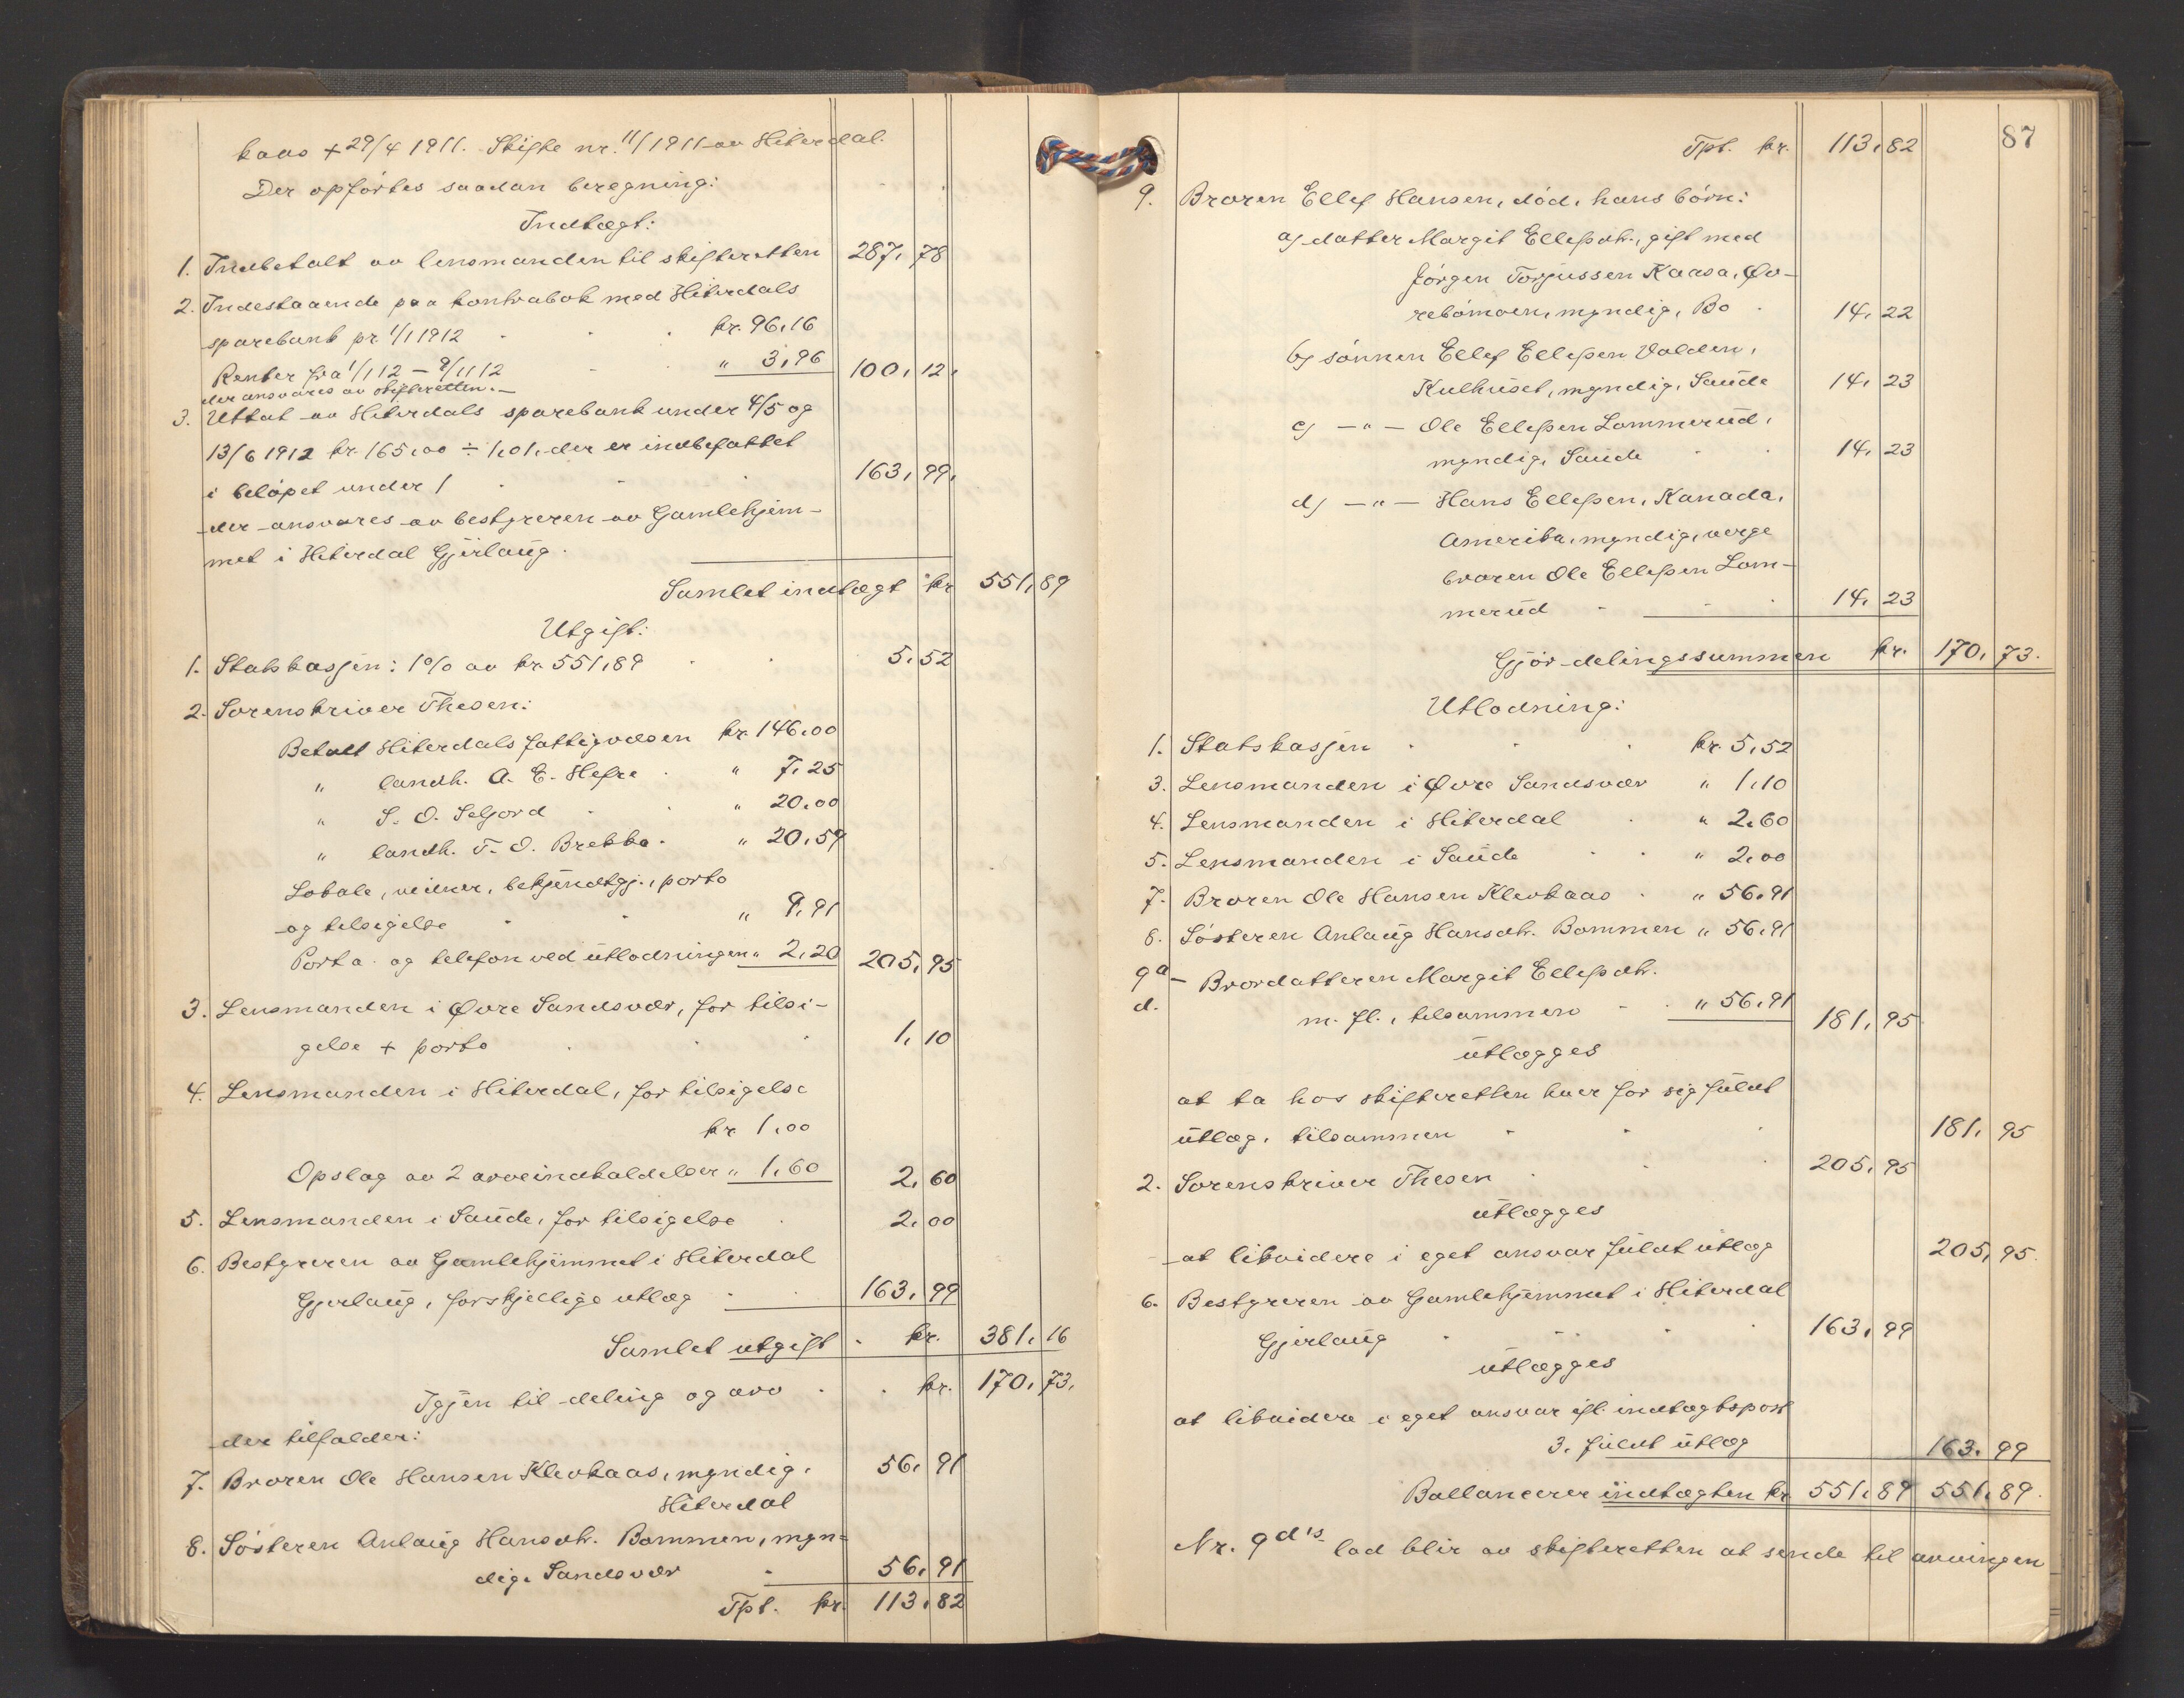 kaas + 29/4 1911. Skifte nr. 11/1911 av Hiterdal.
Der opførtes saadan beregning:
Indtægt:
1. Indbetalt av lensmanden til skifteretten 287, 78
2. Indestaaende paa kontrabok med Hiterdals
sparebank pr 1/1 1912 kr. 96,16
Renter fra 1/1 12 – 9/11 12 " 3,96 100, 12,
der ansvares av skifteretten. –
3. Uttat av Hiterdals sparebank under 4/5 og
13/6 1912 kr. 165,00 ÷ 1,01, der er indbefattet
i beløpet under 1 163, 99,
der ansvares av bestyreren av Gamlehjem-
met i Hiterdal Gjerlaug.
Samlet indtægt kr 551, 89
Utgift:
1. Statskassen: 1% av kr. 551,89 5, 52
2. Sorenskriver Thesen:
Betalt Hiterdals fattigvæsen kr. 146,00
" landh. A. E. Hefre " 7,25
" S. O. Seljord " 20,00
" landh. T. O. Brekka " 20,59
Lokale, vidner, bekjendtgj., porto
og tilsigelse " 9,91
Porto og telefon ved utlodningen " 2,20 205, 95
3. Lensmanden i Øvre Sandsvær, for tilsi-
gelse + porto 1, 10
4. Lensmanden i Hiterdal, for tilsigelse
kr 1,00
Opslag av 2 arveindkaldelser " 1,60 2, 60
5. Lensmanden i Saude, for tilsigelse 2, 00
6. Bestyreren av Gamlehjemmet i Hiterdal
Gjerlaug, forskjellige utlæg 163, 99
Samlet utgift kr. 381, 16
Igjen til deling og arv kr. 170, 73,
der tilfalder:
7. Broren Ole Hansen Klevkaas, myndig, 56, 91
Hiterdal
8. Søsteren Anlaug Hansdtr. Bommen, myn-
dig, Sandsvær 56, 91
Tpt. kr. 113, 82
87
Tpt. kr. 113, 82
9. Broren Ellef Hansen, død, hans børn:
a) datter Margit Ellefsdtr., gift med
Jørgen Torjussen Kaasa, Øv-
rebømoen, myndig, Bø 14, 22
b) sønnen Ellef Ellefsen Valden,
Kulhuset, myndig, Saude 14, 23
c) – " – Ole Ellefsen Lommerud,
myndig, Saude 14, 23
d) – " – Hans Ellefsen, Kanada,
Amerika, myndig, verge
broren Ole Ellefsen Lom-
merud 14, 23
Gjør delingssummen kr. 170, 73.
Utlodning:
1. Statskassen kr. 5,52
3. Lensmanden i Øvre Sandsvær " 1,10
4. Lensmanden i Hiterdal " 2,60
5. Lensmanden i Saude " 2,00
7. Broren Ole Hansen Klevkaas " 56,91
8. Søsteren Anlaug Hansdtr. Bommen " 56,91
9a – Brordatteren Margit Ellefsdtr.
d. m. fl., tilsammen " 56,91 181, 95
utlægges
at ta hos skifteretten hver for sig fuldt
utlæg, tilsammen 181, 95
2. Sorenskriver Thesen 205, 95
utlægges
at likvidere i eget ansvar fuldt utlæg 205, 95.
6. Bestyreren av Gamlehjemmet i Hiterdal
Gjerlaug 163, 99
utlægges
at likvidere i eget ansvar ifl. indtægtspost
3, fuldt utlæg 163, 99
Ballancerer indtægten kr 551, 89 551, 89.
Nr. 9 d's lod blir av skifteretten at sende til arvingen